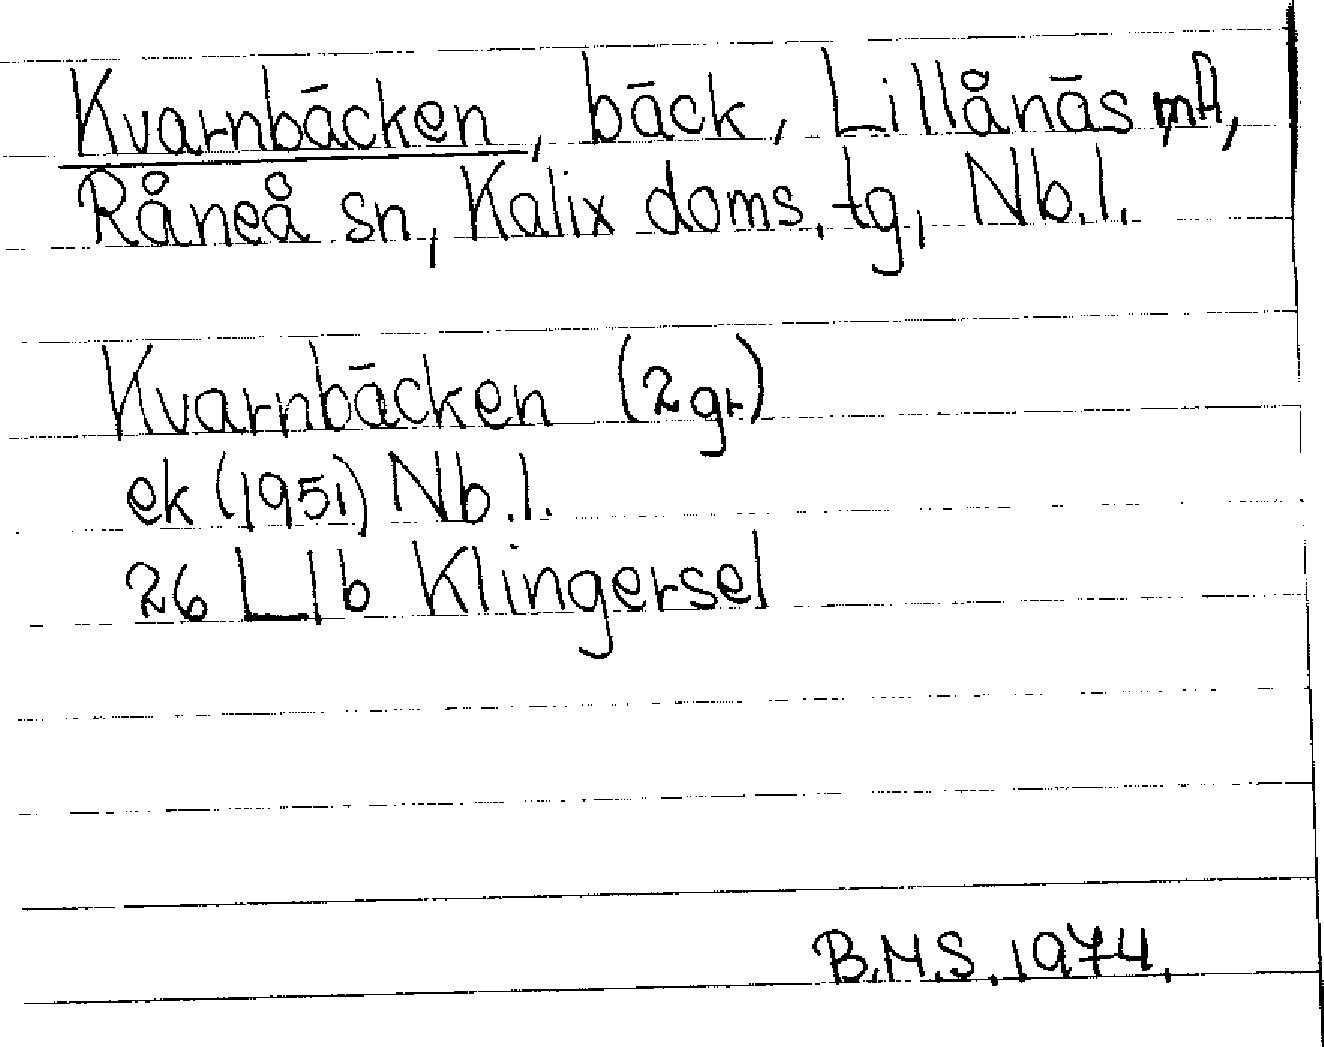 Kvarnbäcken, bäck, Lillånäs mfl,
Råneå sn, Kalix doms. tg, Nb.l.
Kvarnbäcken (2gr)
ek (1951) Nb.l.
26 L Ib Klingersel
B.M.S. 1974.